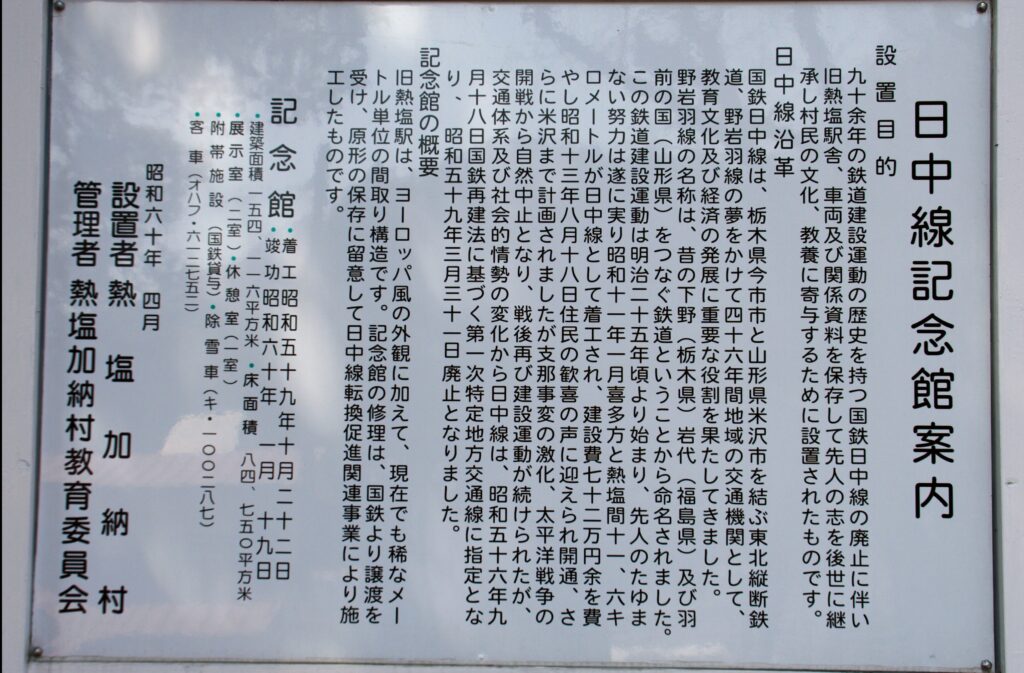 日中線記念館案内
設置目的
九十余年の鉄道建設運動の歴史を持つ国鉄日中線の廃止に伴い
旧熱塩駅舎、車両及び関係資料を保存して先人の志を後世に継
承し村民の文化、教養に寄与するために設置されたものです。
日中線沿革
国鉄日中線は、栃木県今市市と山形県米沢市を結ぶ東北縦断鉄
道、野岩羽線の夢をかけて四十六年間地域の交通機関として、
教育文化及び経済の発展に重要な役割を果たしてきました。
野岩羽線の名称は、昔の下野(栃木県)岩代(福島県)及び羽
前の国(山形県)をつなぐ鉄道ということから命名されました。
この鉄道建設運動は明治二十五年頃より始まり、先人のたゆま
ない努力は遂に実り昭和十一年一月喜多方と熱塩間十一、六キ
ロメートルが日中線として着工され、建設費七十二万円余を費
やし昭和十三年八月十八日住民の歓喜の声に迎えられ開通、さ
らに米沢まで計画されましたが支那事変の激化、太平洋戦争の
開戦から自然中止となり、戦後再び建設運動が続けられたが、
交通体系及び社会的情勢の変化から日中線は、昭和五十六年九
月十八日国鉄再建法に基づく第一次特定地方交通線に指定とな
り、昭和五十九年三月三十一日廃止となりました。
記念館の概要
旧熱塩駅は、ヨーロッパ風の外観に加えて、現在でも稀なメー
トル単位の間取り構造です。記念館の修理は、国鉄より譲渡を
受け、原形の保存に留意して日中線転換促進関連事業により施
工したものです。
記念館・着工昭和五十九年十月二十二日
・竣功昭和六十年一月十九日
・建築面積一五四、一一六平方米・床面積 八四、七五〇平方米
・展示室(二室)・休憩室(一室)
・附帯施設(国鉄貸与)・除雪車(キ・一〇〇二八七)
・客車(オハフ・六一二七五二)
昭和六十年 四月
設置者 熱塩加納村
管理者 熱塩加納村教育委員会